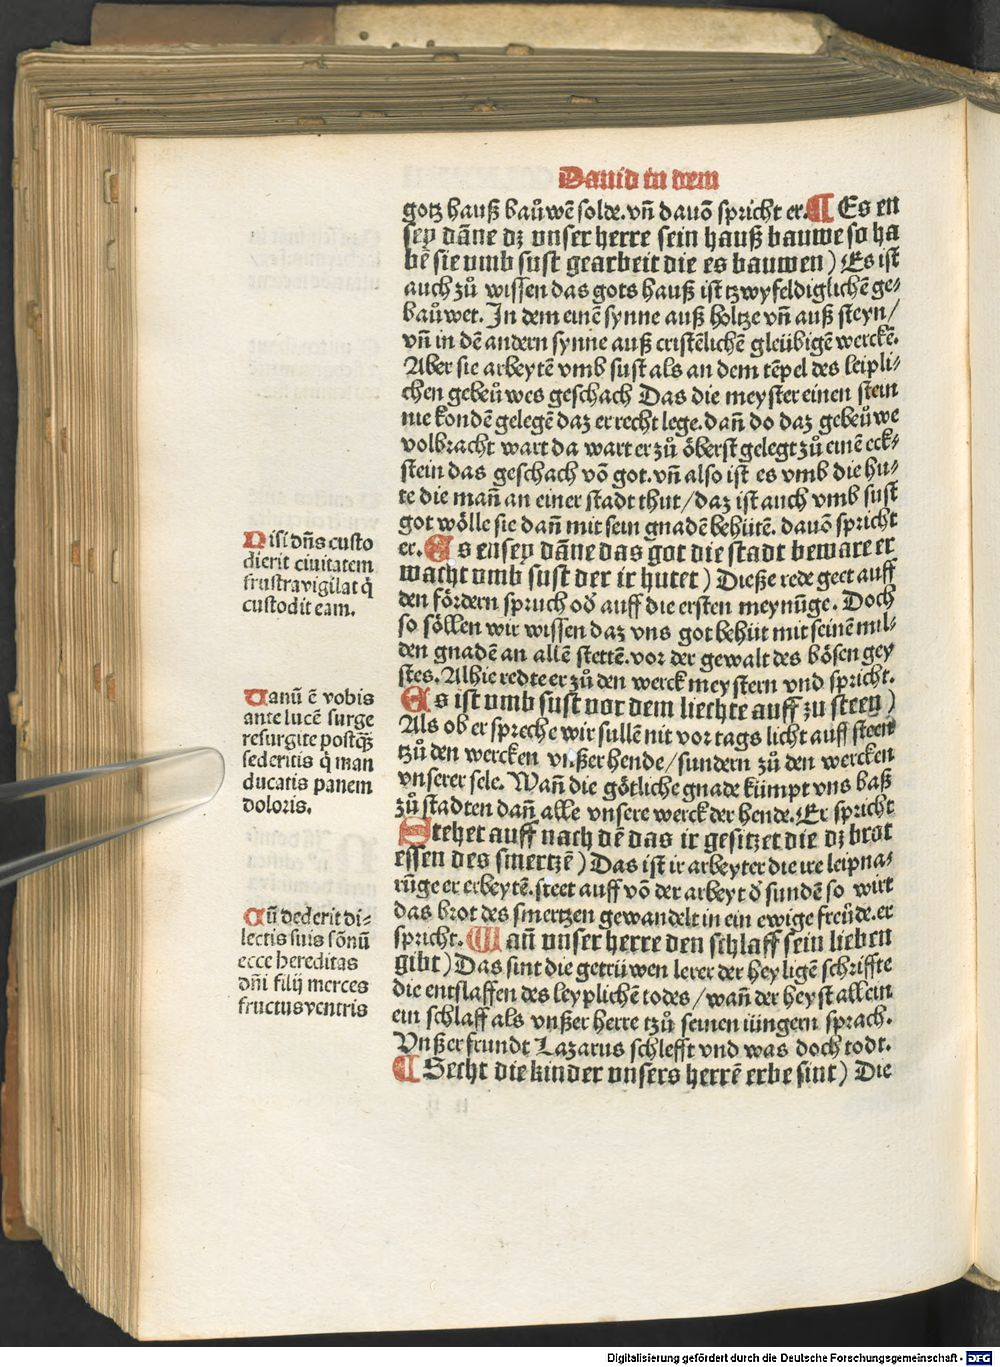 Dauid in dem
gotz hauß baůwẽ solde. vñ dauõ spricht er. ¶ Es en
sey dãne dz vnser herre sein hauß bauwe so ha
bẽ sie vmb sust gearbeit die es bauwen) Es ist
auch zů wissen das gots hauß ist tzwyfeldiglichẽ ge⸗
baůwet. In dem einẽ synne auß holtze vñ auß steyn/
vñ in dẽ andern synne auß cristẽlichẽ gleübigẽ werckẽ.
Aber sie arbeytẽ vmb sust als an dem tẽpel des leipli⸗
chen gebeůwes geschach Das die meyster einen stein
nie kondẽ gelegẽ daz er recht lege. dañ do daz gebeůwe
volbracht wart da wart er zů öberst gelegt zů einẽ eck⸗
stein das geschach võ got. vñ also ist es vmb die hu⸗
te die mañ an einer stadt thut/daz ist auch vmb sust
got wölle sie dañ mit sein gnadẽ behütẽ. dauõ spricht
er. Es ensey dãne das got die stadt beware er
wacht vmb sust der ir hutet) Dieße rede geet auff
den fördern spruch oď auff die ersten meynũge. Doch
so söllen wir wissen daz vns got behüt mit seinẽ mil⸗
den gnadẽ an allẽ stettẽ. vor der gewalt des bösen gey
stes. Alhie redte er zů den werck meystern vnd spricht.
Es ist vmb sust vor dem liechte auff zu steen)
Als ob er spreche wir sullẽ nit vor tags licht auff steen
tzů den wercken vnßer hende/sundern zů den wercken
vnserer sele. Wañ die götliche gnade kümpt vns baß
zů stadten dañ alle vnsere werck der hende. Er spricht
Stehet auff nach dẽ das ir gesitzet die dz brot
essen des smertzẽ) Das ist ir arbeyter die ire leipna⸗
rũge er erbeytẽ. steet auff võ der arbeyt ď sundẽ so wirt
das brot des smertzen gewandelt in ein ewige freüde. er
spricht. Wañ vnser herre den schlaff sein lieben
gibt) Das sint die getrüwen lerer der heyligẽ schriffte
die entslaffen des leyplichẽ todes/wañ der heyst allein
ein schlaff als vnßer herre tzů seinen iüngern sprach.
Vnßer frundt Lazarus schlefft vnd was doch todt.
¶ Secht die kinder vnsers herrẽ erbe sint) Die
Nisi dñs custo
dierit ciuitatem
frustra vigilat q̃
custodit eam.
Vanũ ẽ vobis
ante lucẽ surge
resurgite postq̃ꝫ
sederitis q̃ man
ducatis panem
doloris.
Cũ dederit di⸗
lectis suis sõnũ
ecce hereditas
dñi filij merces
fructus ventris
Digitalisierung gefördert durch die Deutsche Forschungsgemeinschaft - DFG